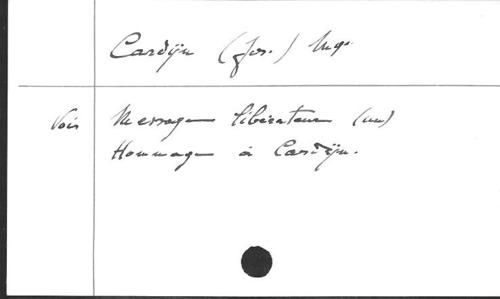 Cardijn (Jos.) Mgr.
Voir Message libérateur (un)
Hommage à Cardijn.